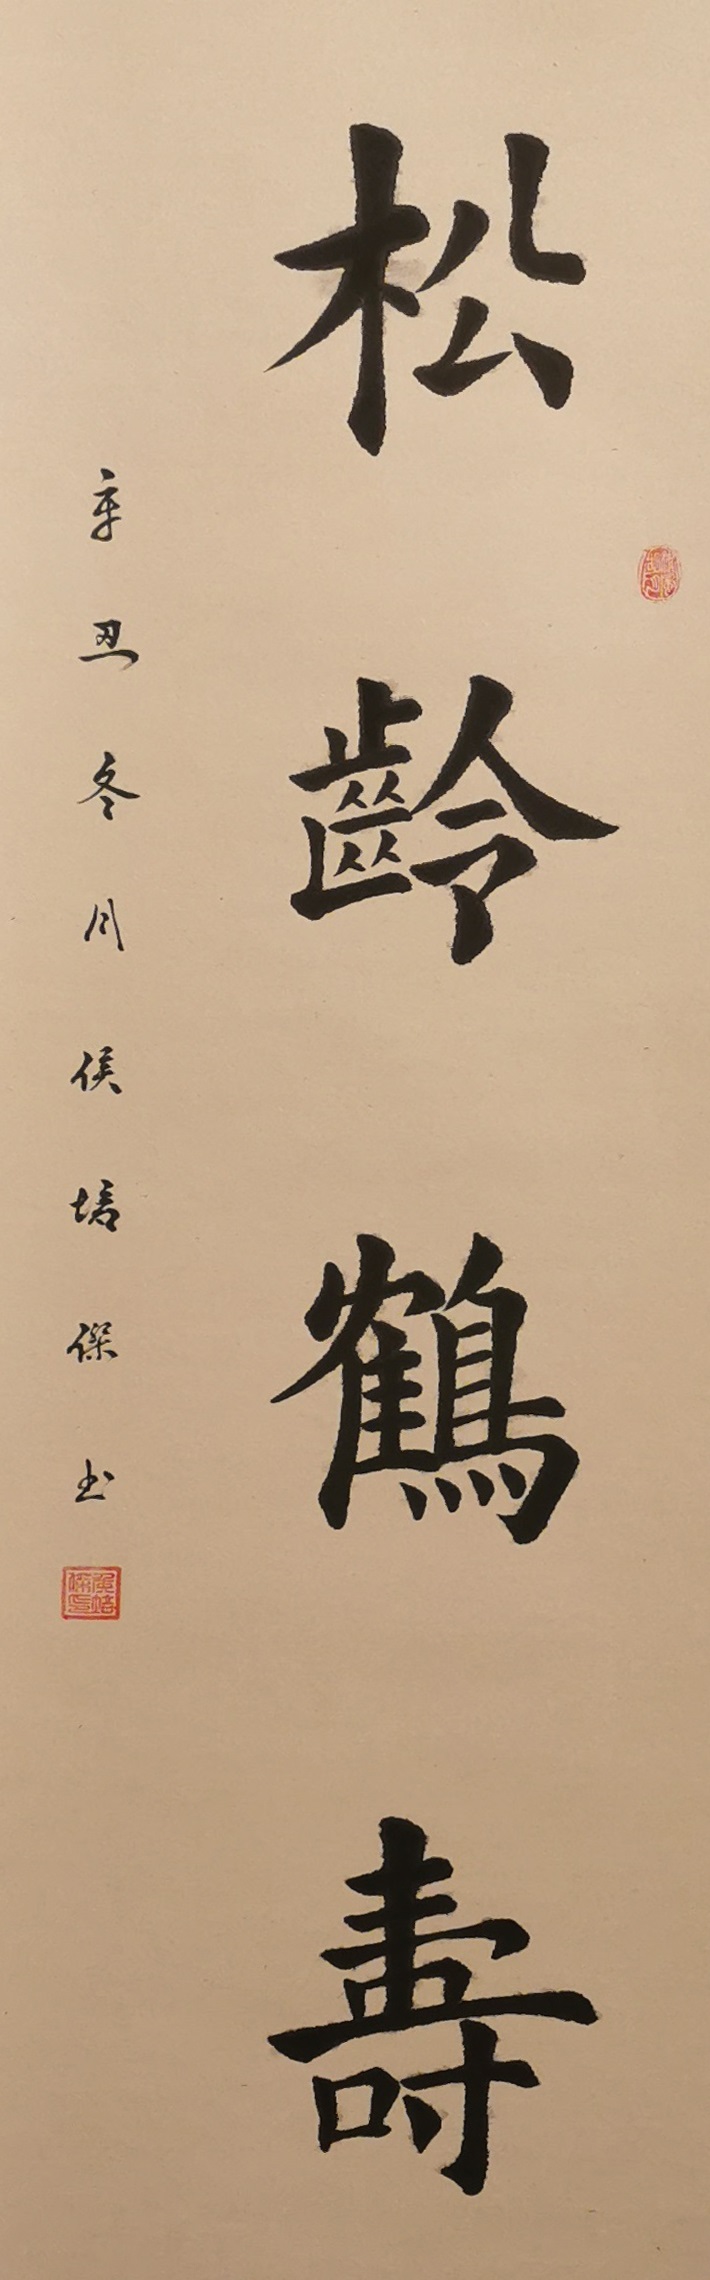 松齡鶴壽
辛丑冬月侯培傑书